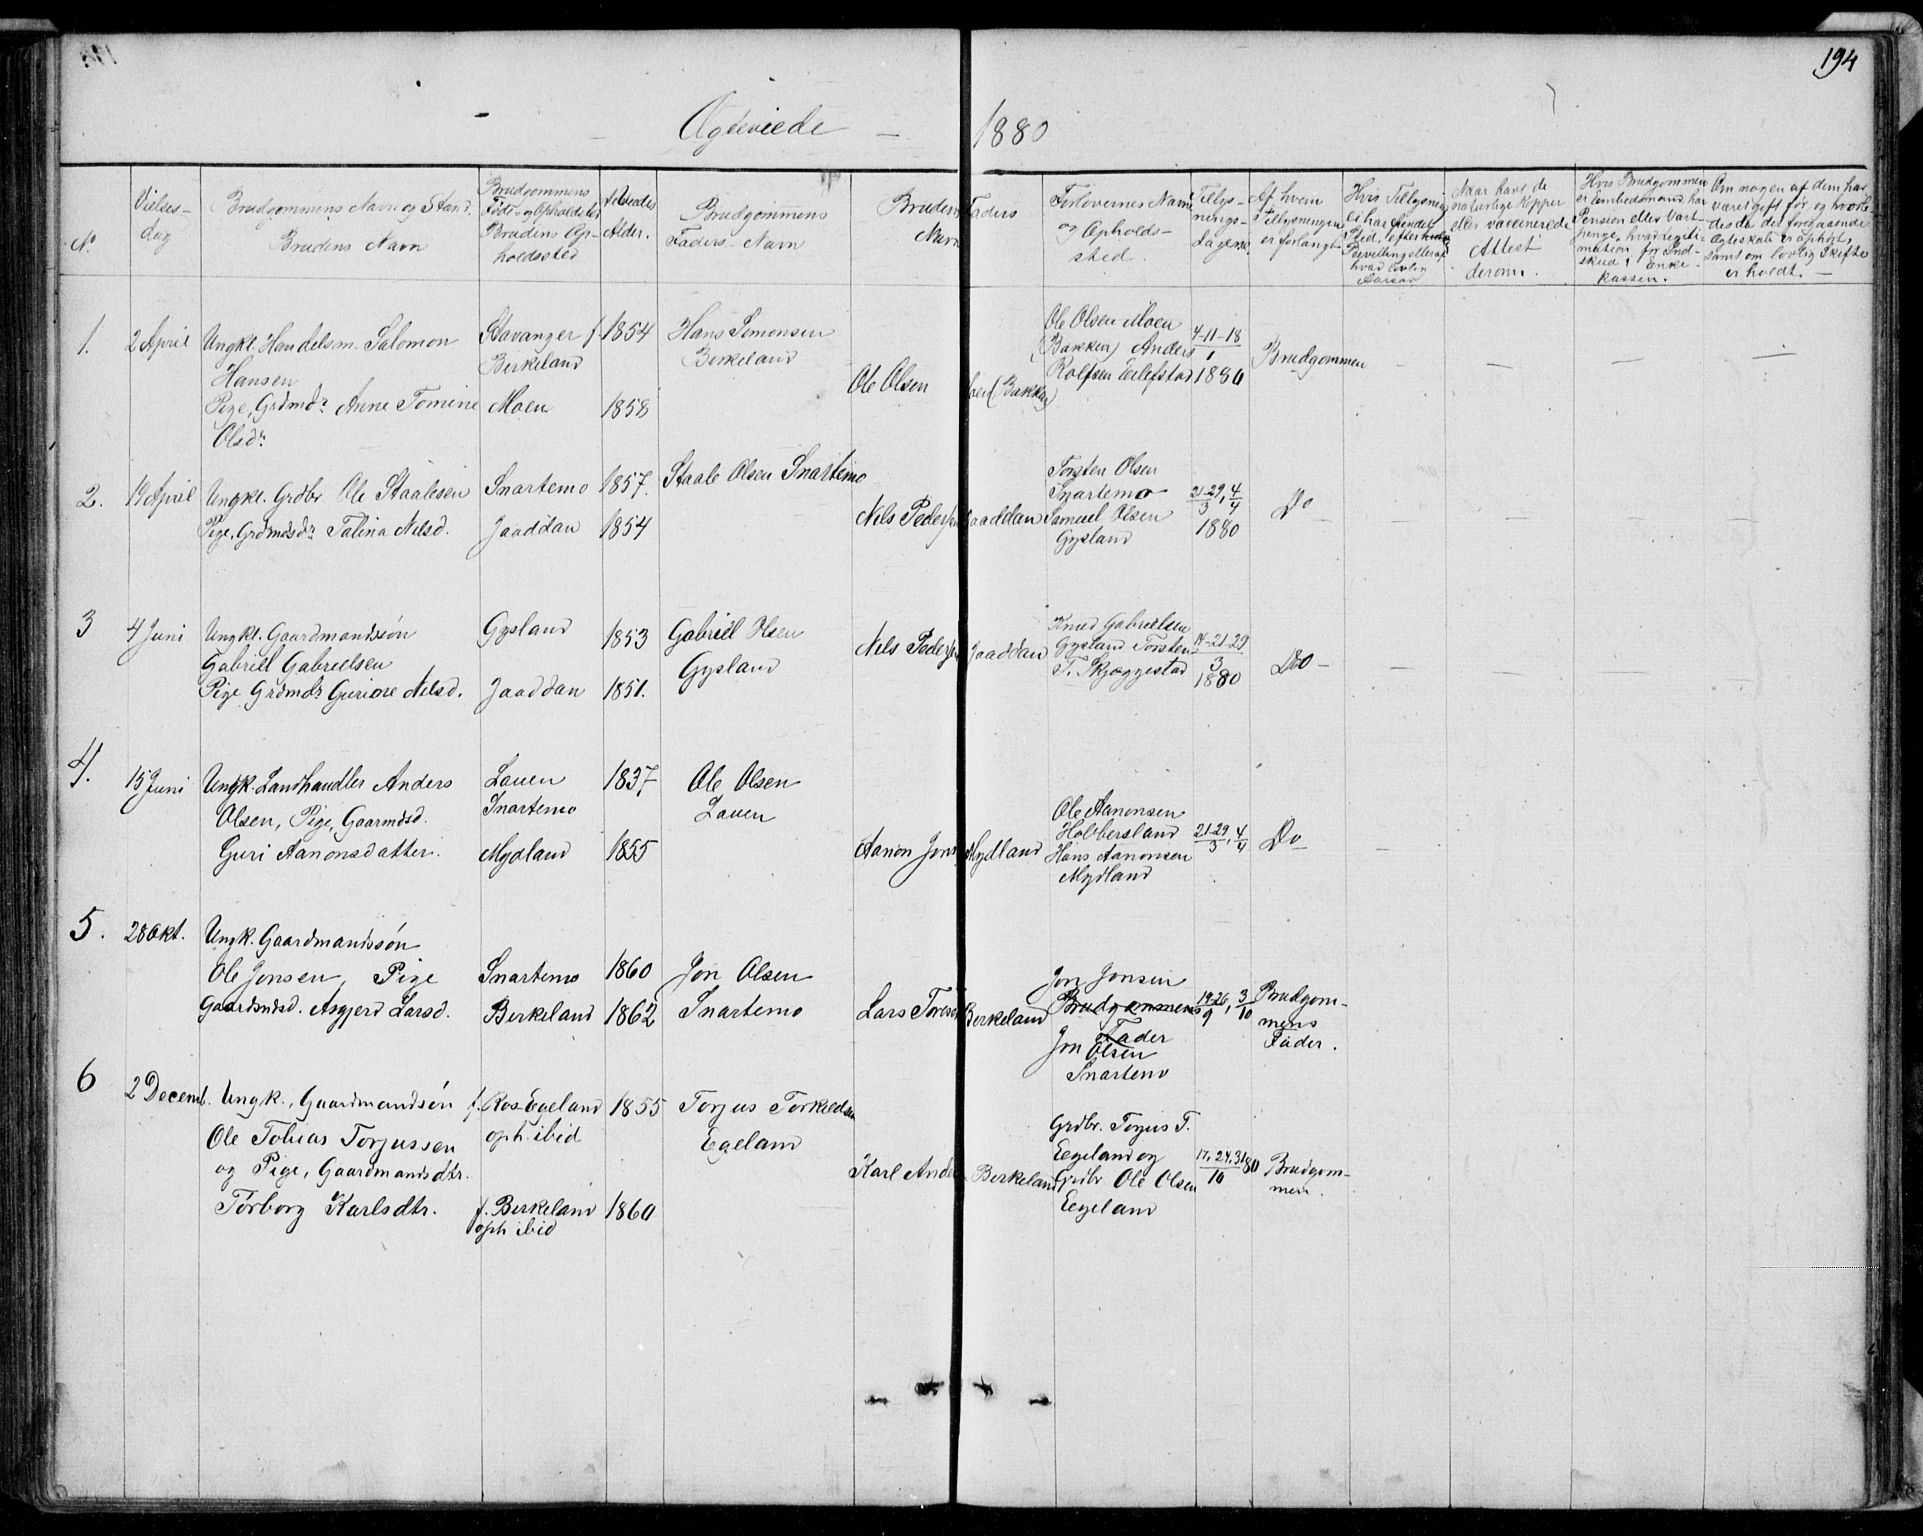 194
Ægteviede — 1880
No
Vielses-
dag
Brudgommens Navn og Stand.
Brudens Navn
Brudgommens
Føde- og Opholdsted
Brudens Op-
holdssted
Alder.
Brudgommens
Faders Navn
Brudens Faders
Navn
Forlovernes Navn
og Opholds-
sted.
Tillys-
nings-
dagene.
Af hvem
Tillysningen
er forlangt.
Hvis Tillysning
ei har fundet
Sted, efter hvilken
Bevilling eller af
hvad lovlig
Aarsag
Naar havt de
naturlige Kopper
eller vaccinerede
Attest
derom.
Hvis Brudgommen
er Embedsmand har
Pension eller Vart-
penge, hvad Legiti-
mation for Ind-
skud i Enke-
kassen.
Om nogen af dem har
været gift før, og hvorle-
des da det foregaaende
Ægteskab er ophørt,
samt om lovlig Skifte
er holdt. —
1. 2 April Ungkl. Handelsm. Salomon
Hansen
Pige, Grdmdr. Anne Tomine
Olsdr.
Stavanger f.
Birkeland
Moen
1854
1858
Hans Simonsen
Birkeland
Ole Olsen Moen (Bakken)
Ole Olsen Moen
(Bakken) Anders
Rolfsen Eilefstad
4-11-18
1
1880
Brudgommen
2. 19 April Ungkl. Grdbr. Ole Staalesen
Pige, Grdmdsdr. Talina Nelsd.
Snartemo
Jaaddan
1857.
1854
Staale Olsen Snartemo
Nils Pedersen Jaaddan
Torsten Olsen
Snartemo
Samuel Olsen
Gysland
21-29, 4
3 4
1880
Do
3 4 Juni Ungkl. Gaardmandssøn
Gabriel Gabrielsen
Pige Grdmdr. Guriore Nilsd.
Gysland
Jaaddan
1853
1851.
Gabriel Olsen
Gysland
Nils Pedersen Jaaddan
Knud Gabrielsen
Gysland Torsten
T. Skjeggestad
14-21-29
3
1880
Do -
4. 15 Juni Ungk. Landhandler Anders
Olsen, Pige, Gaarmdsd.
Guri Aanonsdatter.
Lauen
Snartemo
Mydland
1837
1855
Ole Olsen
Lauen
Aanon Jons. Mydland
Ole Aanonsen
Hobbersland
Hans Aanonsen
Mydland
21-29, 4
3 4
Do
5. 28 Okt. Ungk. Gaardmandssøn
Ole Jonsen, Pige
Gaardmdsd. Asgjerd Larsd.
Snartemo
Berkeland
1860
1862
Jon Olsen
Snartemo
Lars Toresen Berkeland
Jon Jonsen
Brudgommens
Fader
Jon Olsen
Snartemo
19-26, 3
9 10
Brudgom-
mens
Fader.
6 2 Decemb. Ungk., Gaardmandsøn
Ole Tobias Torjussen
og Pige, Gaardmandsdtr.
Torborg Karlsdtr.
f. Ros-Egeland
oph. ibid
f. Berkeland
oph ibid
1855
1860
Torjus Torkeldsen
Egeland
Karl Anders. Berkeland
Grdbr. Torjus T.
Eegeland og
Grdbr. Ole Olsen
Eegeland
17, 24, 31 80
10
Brudgom-
men.